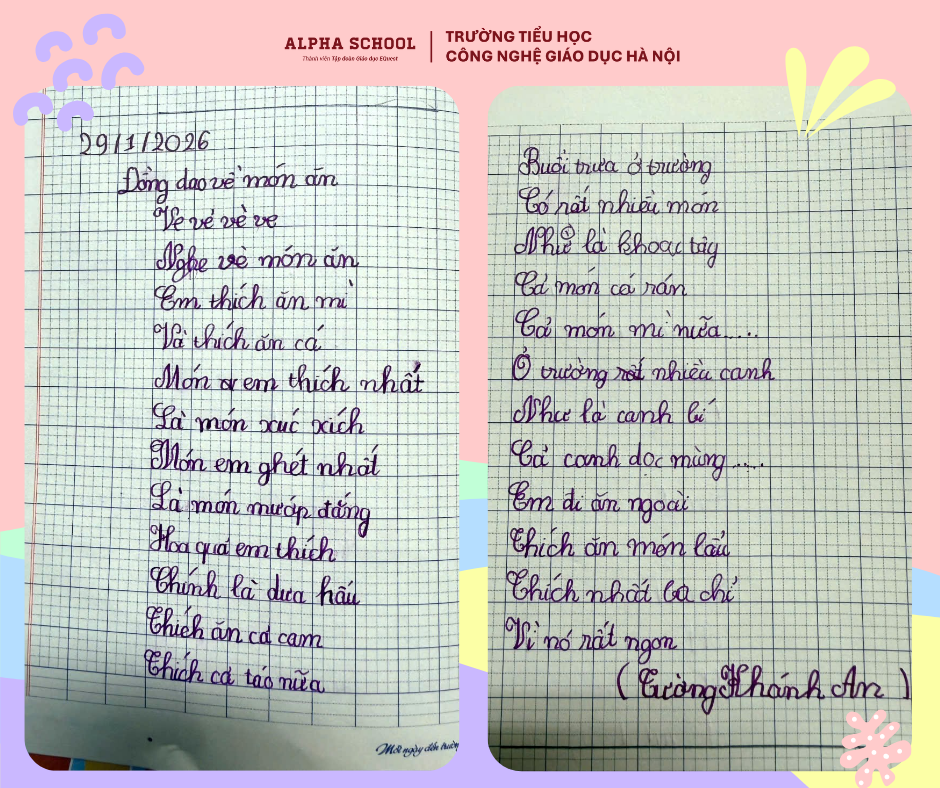 ALPHA SCHOOL
Thành viên Tập đoàn Giáo dục EQuest
TRƯỜNG TIỂU HỌC
CÔNG NGHỆ GIÁO DỤC HÀ NỘI
29/1/2026
Đồng dao về món ăn
Ve vé vè ve
Nghe vè món ăn
Em thích ăn mì
Và thích ăn cá
Món em thích nhất
Là món xúc xích
Món em ghét nhất
Là món mướp đắng
Hoa quả em thích
Chính là dưa hấu
Thích ăn cả cam
Thích cả táo nữa
Mỗi ngày đến trườn
Buổi trưa ở trường
Có rất nhiều món
Như là khoai tây
Cả món cá rán
Cả món mì nữa....
Ở trường rất nhiều canh
Như là canh bí
Cả canh dọc mùng....
Em đi ăn ngoài
Thích ăn món lẩu
Thích nhất ba chỉ
Vì nó rất ngon
(Tường Khánh An)